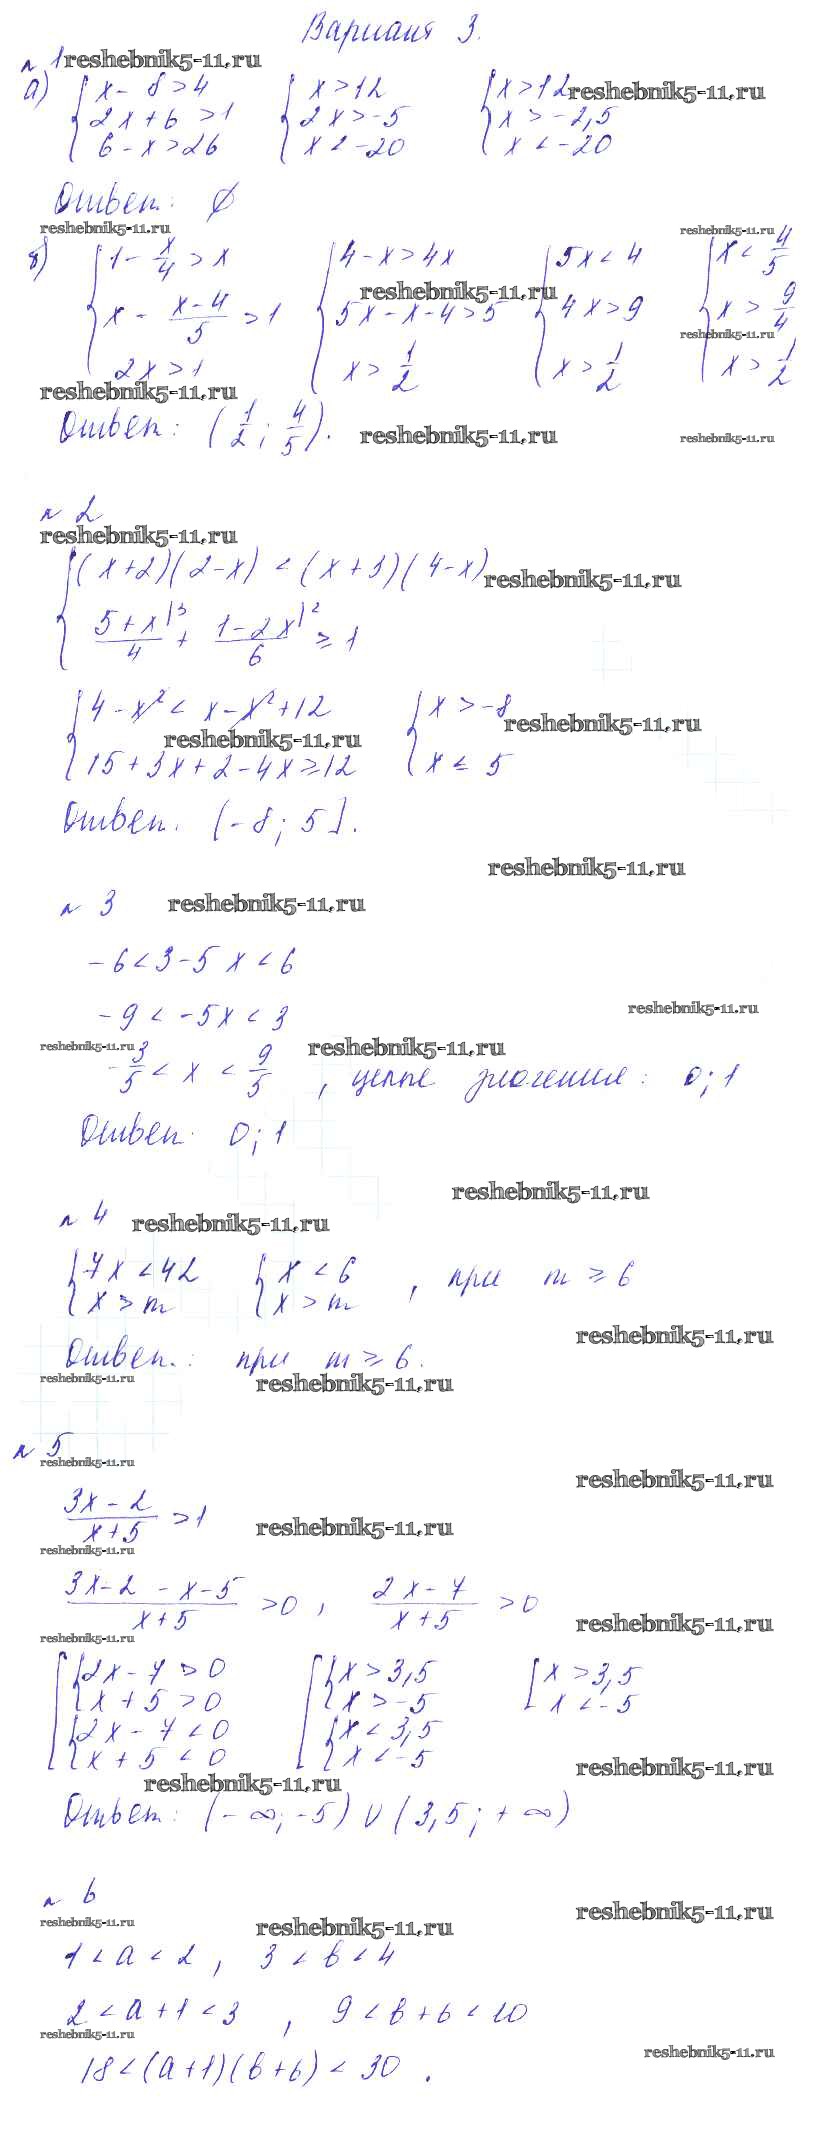 Вариант 3.
№ 1 reshebnik5-11.ru
а) { x - 8 > 4 { x > 12 { x > 12 reshebnik5-11.ru
2x + 6 > 1 2x > -5 x > -2,5
6 - x > 26 x < -20 x < -20
Ответ: ∅
reshebnik5-11.ru reshebnik5-11.ru
б) { 1 - x/4 > x { 4 - x > 4x { 5x < 4 { x < 4/5
reshebnik5-11.ru
x - (x-4)/5 > 1 5x - x - 4 > 5 4x > 9 x > 9/4
reshebnik5-11.ru
2x > 1 x > 1/2 x > 1/2 x > 1/2
reshebnik5-11.ru
Ответ: (1/2; 4/5). reshebnik5-11.ru reshebnik5-11.ru
№ 2
reshebnik5-11.ru
{ (x+2)(2-x) < (x+3)(4-x) reshebnik5-11.ru
(5+x)/4 |3 + (1-2x)/6 |2 ≥ 1
{ 4 - x² < x - x² + 12 { x > -8 reshebnik5-11.ru
reshebnik5-11.ru
15 + 3x + 2 - 4x ≥ 12 x ≤ 5
Ответ. (-8; 5].
reshebnik5-11.ru
№ 3 reshebnik5-11.ru
-6 < 3 - 5x < 6
-9 < -5x < 3 reshebnik5-11.ru
reshebnik5-11.ru reshebnik5-11.ru
-3/5 < x < 9/5 , целые значения: 0; 1
Ответ: 0; 1
reshebnik5-11.ru
№ 4 reshebnik5-11.ru
{ 7x < 42 { x < 6 , при m ≥ 6
x > m x > m
reshebnik5-11.ru
Ответ.: при m ≥ 6.
reshebnik5-11.ru reshebnik5-11.ru
№ 5
reshebnik5-11.ru reshebnik5-11.ru
(3x-2)/(x+5) > 1 reshebnik5-11.ru
reshebnik5-11.ru
(3x-2-x-5)/(x+5) > 0 , (2x-7)/(x+5) > 0 reshebnik5-11.ru
reshebnik5-11.ru
[ { 2x - 7 > 0 [ { x > 3,5 [ x > 3,5
x + 5 > 0 x > -5 x < -5
{ 2x - 7 < 0 { x < 3,5
x + 5 < 0 x < -5 reshebnik5-11.ru
reshebnik5-11.ru
Ответ: (-∞; -5) ∪ (3,5; +∞)
№ 6
reshebnik5-11.ru reshebnik5-11.ru reshebnik5-11.ru
1 < a < 2 , 3 < b < 4
2 < a + 1 < 3 , 9 < b + 6 < 10
reshebnik5-11.ru reshebnik5-11.ru
18 < (a+1)(b+6) < 30 .